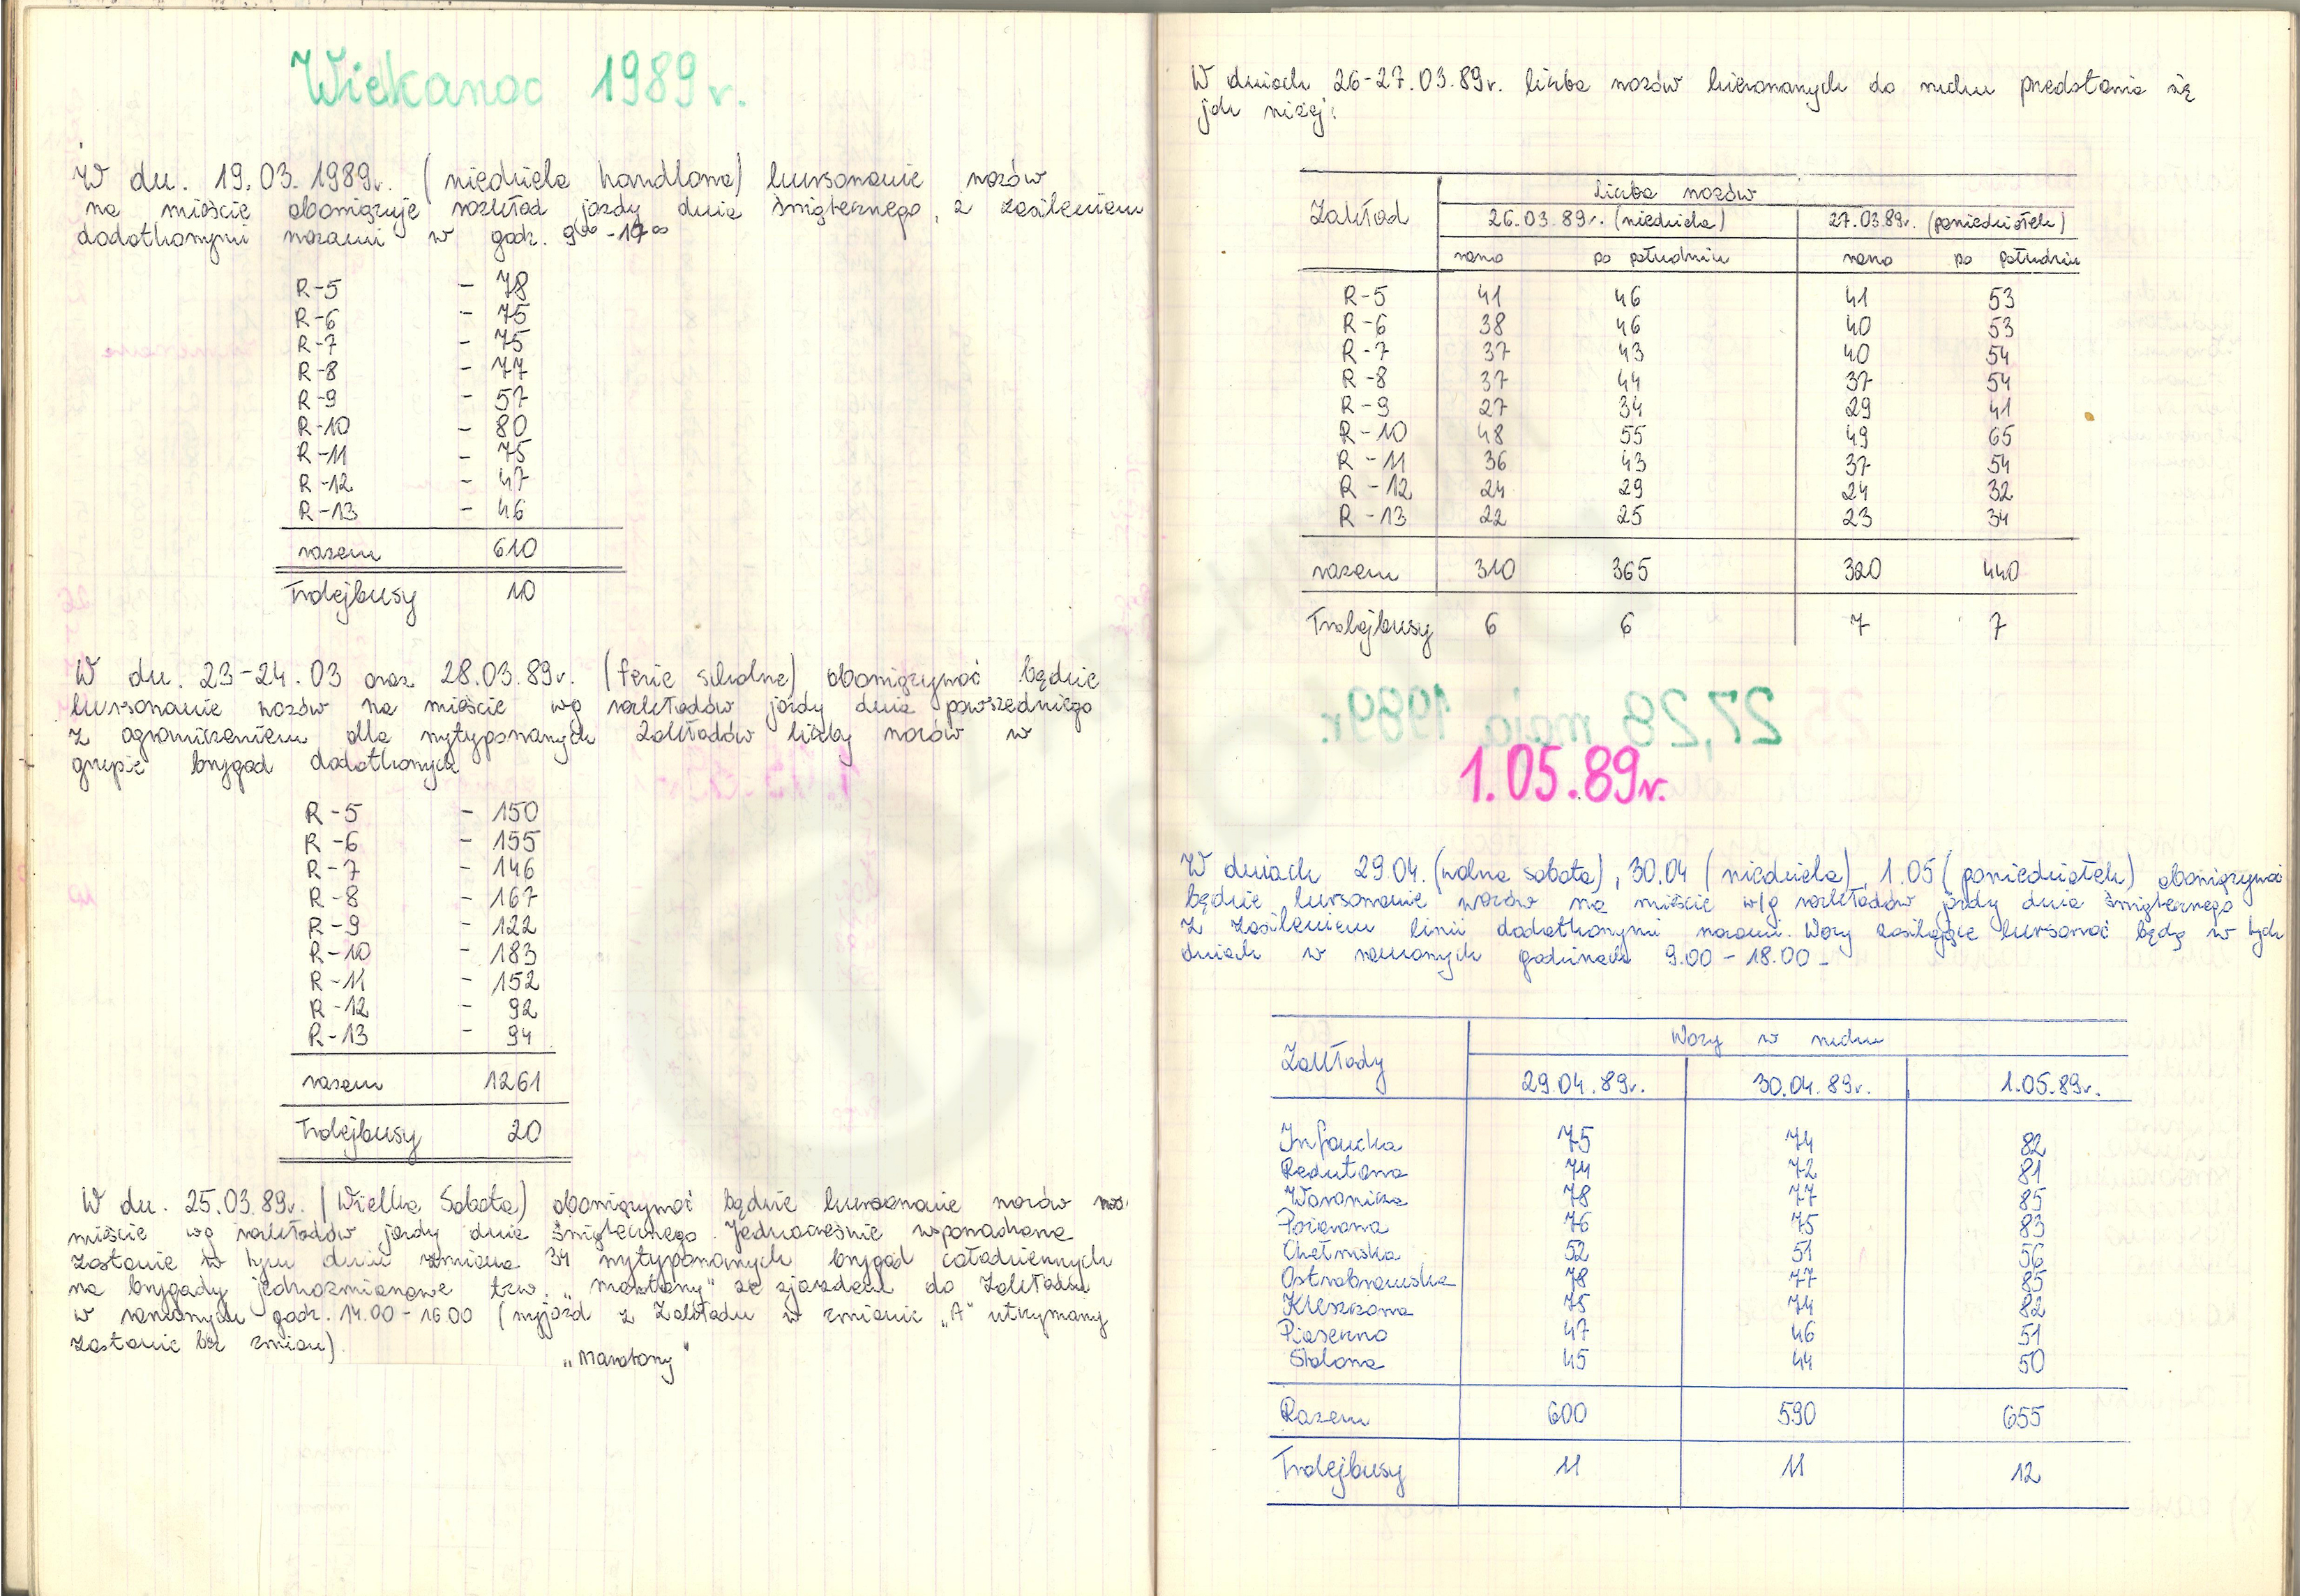 Wielkanoc 1989r.
W dn. 19.03.1989r. (niedziela handlowa) kursowanie wozów
na mieście obowiązuje rozkład jazdy dnia świątecznego, z zasileniem
dodatkowymi wozami w godz. 9⁰⁰-17⁰⁰
R-5 - 78
R-6 - 75
R-7 - 75
R-8 - 77
R-9 - 57
R-10 - 80
R-11 - 75
R-12 - 47
R-13 - 46
razem 610
Trolejbusy 10
W dn. 23-24.03 oraz 28.03.89r. (ferie szkolne) obowiązywać będzie
kursowanie wozów na mieście wg rozkładów jazdy dnia powszedniego
z ograniczeniem dla wytypowanych Zakładów liczby wozów w
grupie brygad dodatkowych
R-5 - 150
R-6 - 155
R-7 - 146
R-8 - 167
R-9 - 122
R-10 - 183
R-11 - 152
R-12 - 92
R-13 - 94
razem 1261
Trolejbusy 20
W dn. 25.03.89r. (Wielka Sobota) obowiązywać będzie kursowanie wozów na
mieście wg rozkładów jazdy dnia świątecznego. Jednocześnie wprowadzona
zostanie w tym dniu zmiana 34 wytypowanych brygad całodziennych
na brygady jednozmianowe tzw. „maratony" ze zjazdem do Zakładu
w ramowych godz. 14.00-16.00 (wyjazd z Zakładu w zmianie „A" utrzymany
zostanie bez zmian)
„Maratony"
W dniach 26-27.03.89r. liczba wozów kierowanych do ruchu przedstawia się
jak niżej:
Zakład liczba wozów
26.03.89r. (niedziela) 27.03.89r. (poniedziałek)
rano po południu rano po południu
R-5 41 46 41 53
R-6 38 46 40 53
R-7 37 43 40 54
R-8 37 44 37 54
R-9 27 34 29 41
R-10 48 55 49 65
R-11 36 43 37 54
R-12 24 29 24 32
R-13 22 25 23 34
razem 310 365 320 440
Trolejbusy 6 6 7 7
27,28 maja 1989r.
1.05.89r.
W dniach 29.04. (wolna sobota), 30.04 (niedziela), 1.05 (poniedziałek) obowiązywać
będzie kursowanie wozów na mieście w/g rozkładów jazdy dnia świątecznego
z zasileniem linii dodatkowymi wozami. Wozy zasilające kursować będą w tych
dniach w ramowych godzinach 9.00-18.00-
Zakłady Wozy w ruchu
29.04.89r. 30.04.89r. 1.05.89r.
Inflancka 75 74 82
Redutowa 74 72 81
Woronicza 78 77 85
Pożarowa 76 75 83
Chełmska 52 51 56
Ostrobramska 78 77 85
Kleszczowa 75 74 82
Piaseczno 47 46 51
Stalowa 45 44 50
Razem 600 590 655
Trolejbusy 11 11 12